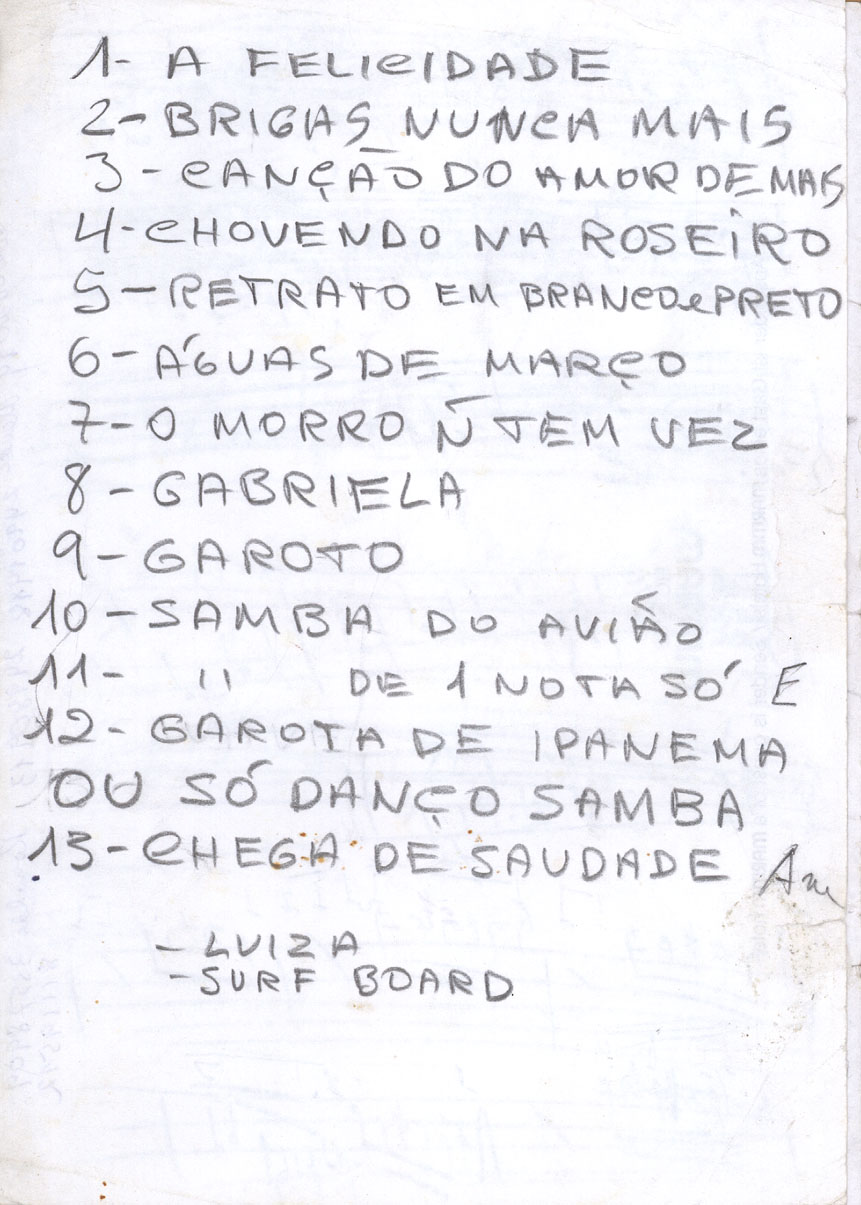 1- A FELICIDADE
2- BRIGAS NUNCA MAIS
3- CANÇÃO DO AMOR DEMAIS
4- CHOVENDO NA ROSEIRO
5- RETRATO EM BRANCO e PRETO
6- ÁGUAS DE MARÇO
7- O MORRO Ñ TEM VEZ
8- GABRIELA
9- GAROTO
10- SAMBA DO AVIÃO
11- " DE 1 NOTA SÓ E
12- GAROTA DE IPANEMA
OU SÓ DANÇO SAMBA
13- CHEGA DE SAUDADE Am
- LUIZA
- SURF BOARD